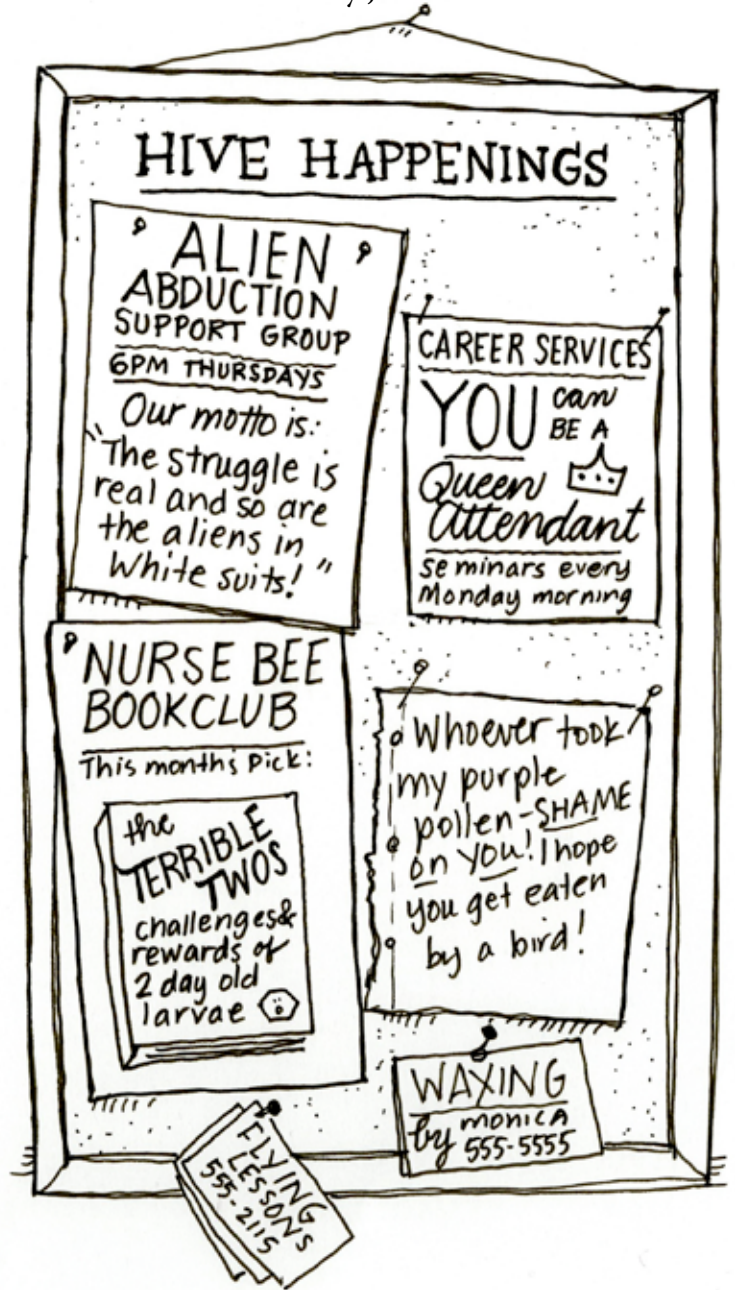 HIVE HAPPENINGS
ALIEN
ABDUCTION
SUPPORT GROUP
6PM THURSDAYS
Our motto is:
"The struggle is
real and so are
the aliens in
White suits!"
CAREER SERVICES
YOU can
BE A
Queen
attendant
seminars every
Monday morning
NURSE BEE
BOOKCLUB
This months Pick:
the
TERRIBLE
TWOS
challenges&
rewards of
2 day old
larvae
Whoever took
my purple
pollen-SHAME
on you! I hope
you get eaten
by a bird!
WAXING
by MONICA
555-5555
FLYING
LESSONS
555-2115